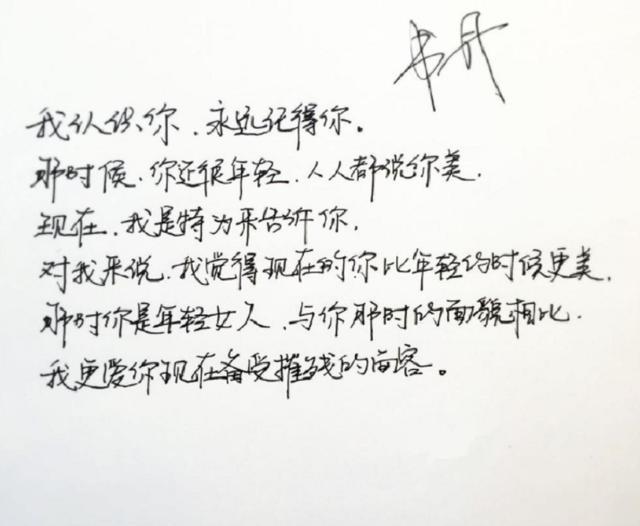 我认识你，永远记得你。
那时候，你还很年轻，人人都说你美，
现在，我是特为来告诉你，
对我来说，我觉得现在的你比年轻的时候更美，
那时你是年轻女人，与你那时的面貌相比，
我更爱你现在备受摧残的面容。